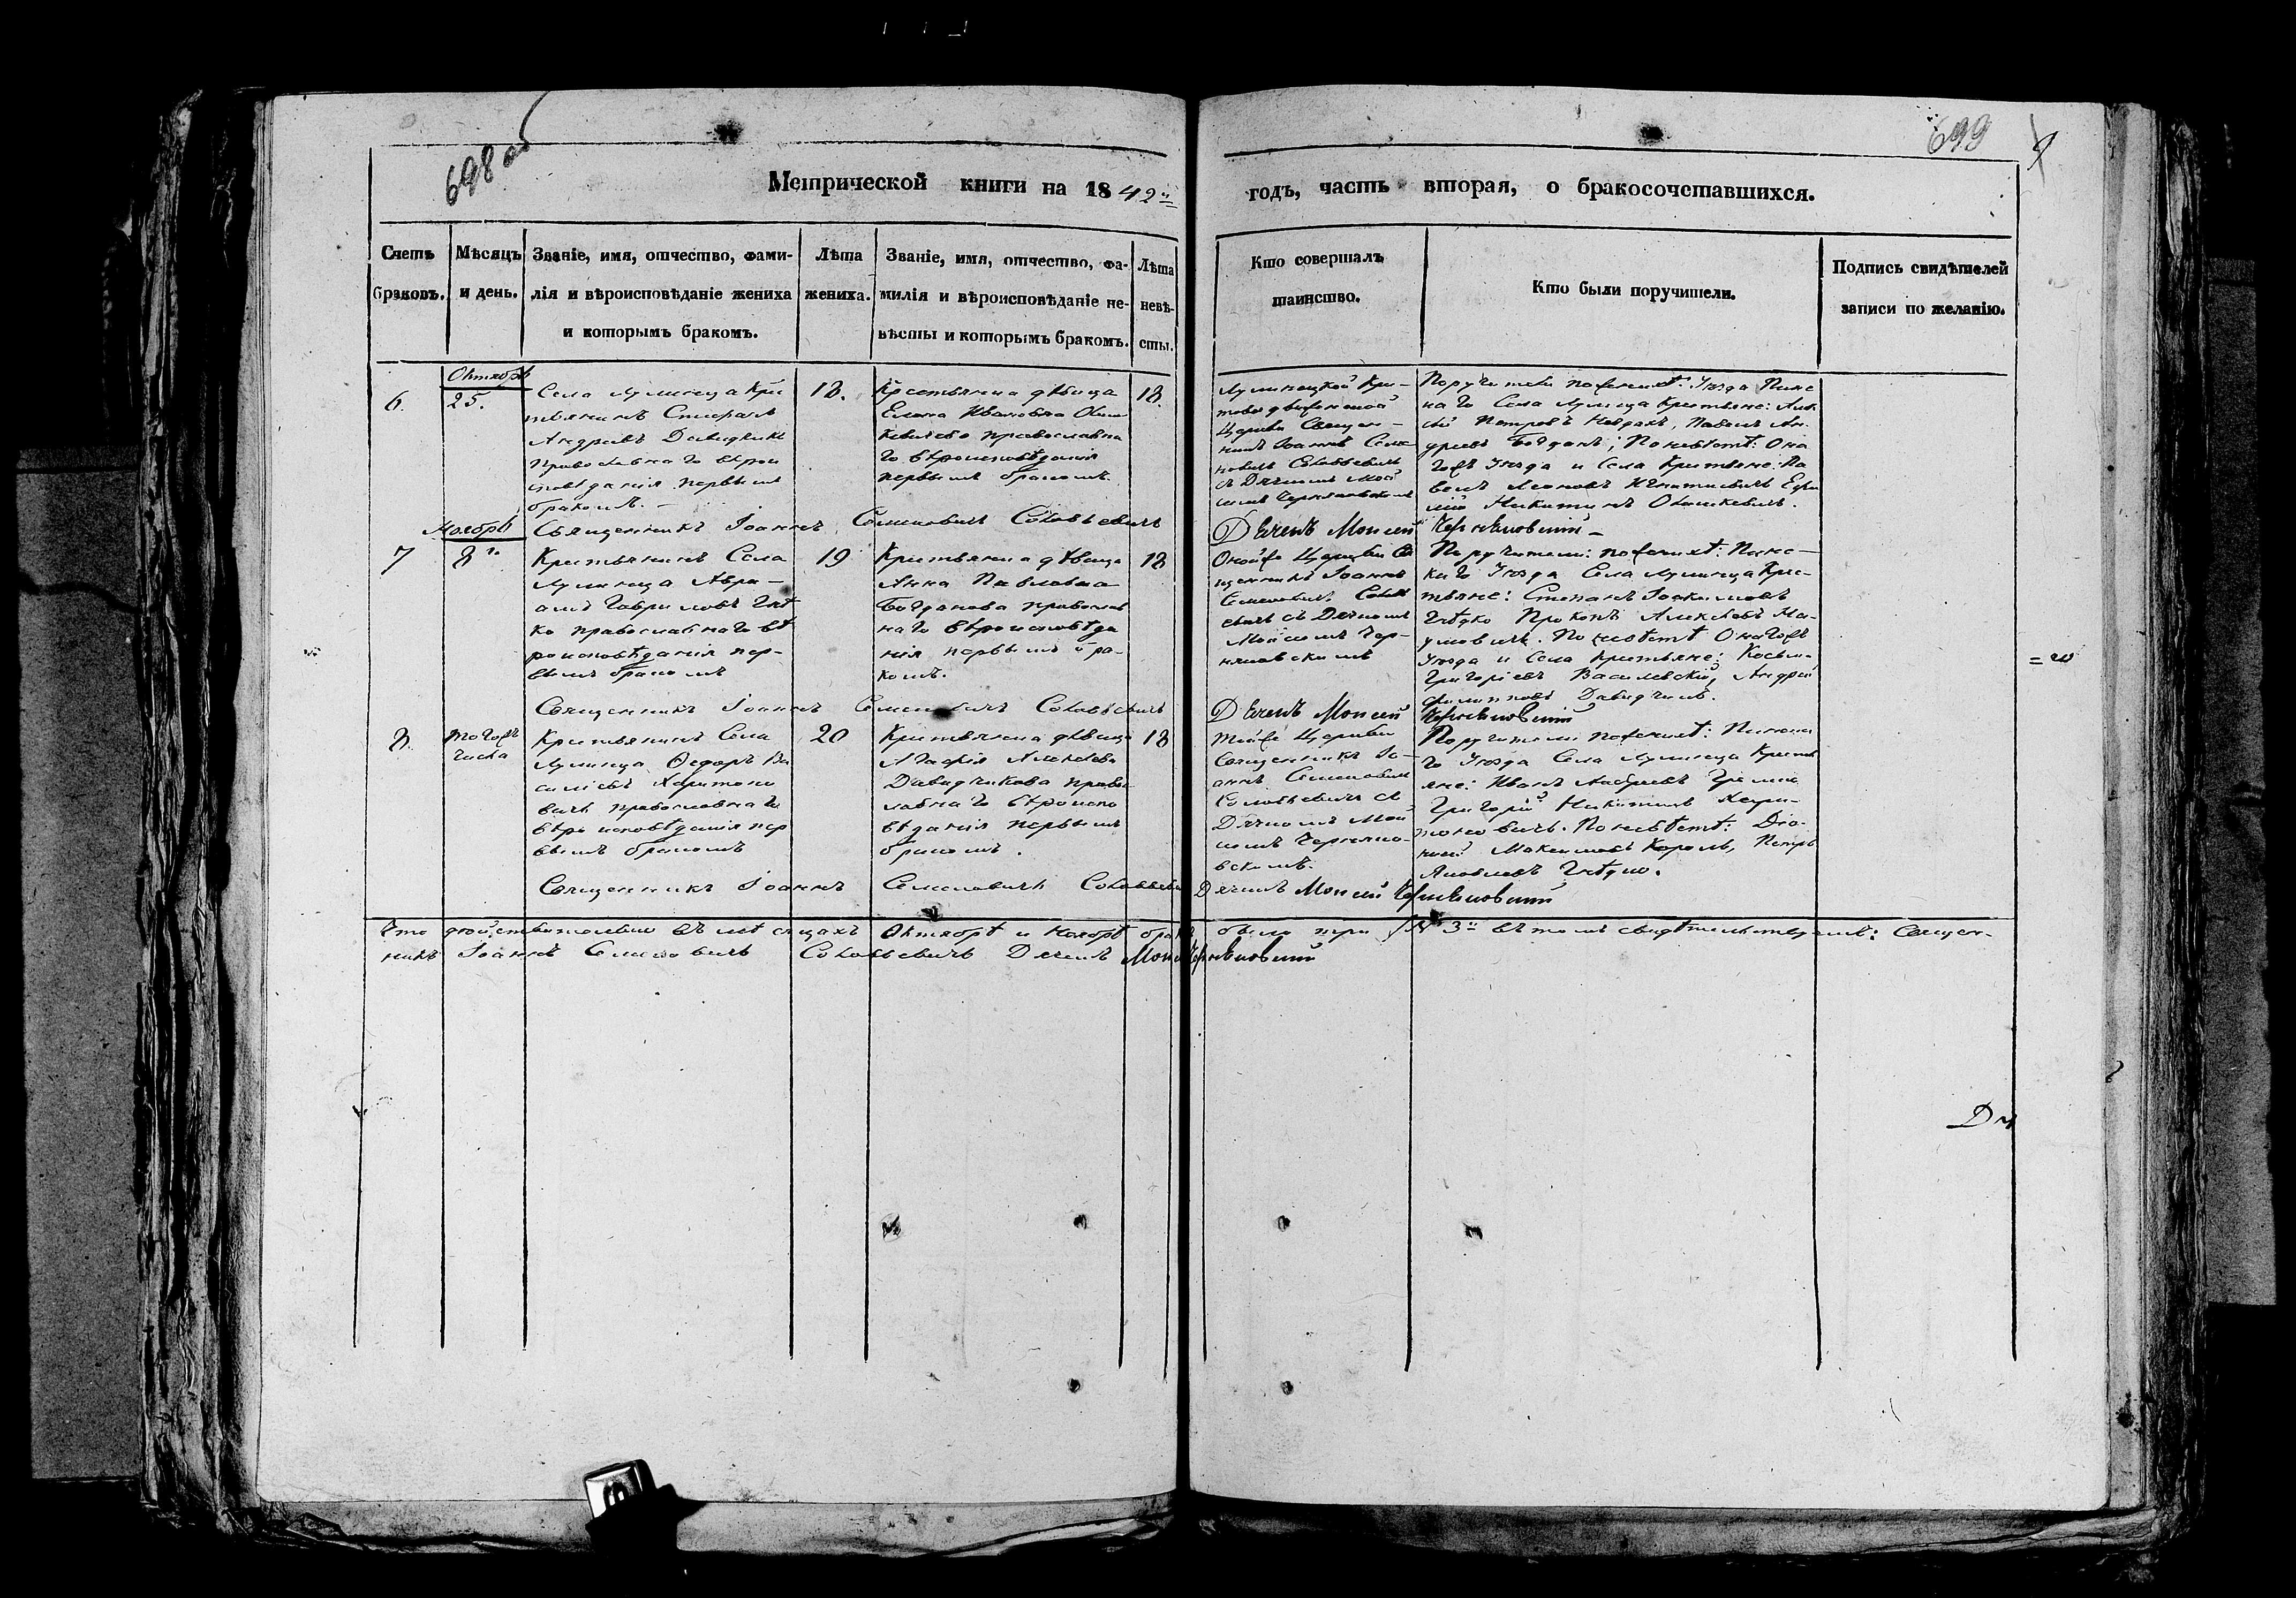 698 об
699
Метрической книги на 1842й
годъ, часть вторая, о бракосочетавшихся.
Счетъ браковъ.
Мѣсяцъ и день.
Званіе, имя, отчество, фами-
лія и вѣроисповѣданіе жениха
и которымъ бракомъ.
Лѣта жениха.
Званіе, имя, отчество, фа-
милія и вѣроисповѣданіе не-
вѣсты и которымъ бракомъ.
Лѣта невѣ-
сты.
Кто совершалъ
таинство.
Кто были поручители.
Подпись свидѣтелей
записи по желанію.
6.
Октябрь
25.
Села Лунинца Кре
стьянинъ Стефанъ
Андреевъ Давидчикъ
православнаго вѣрои
сповѣданія первымъ
бракомъ.
18.
Крестьянка дѣвица
Елена Ивановна
православна
го вѣроисповѣданія
первымъ бракомъ.
18.
Лунинецкой Кре-
стовоздвиженской
Церкви Священ-
никъ Іоаннъ Семе
новичъ Соловьевичъ
съ Дячкомъ Мои
сіемъ Черняковскимъ
Поручители по женихѣ: Уѣзда Пинс
каго Села Лунинца Крестьяне:
Петровъ Павелъ Ан
дреевъ Богданъ; По невѣстѣ: Она
гожъ Уѣзда и Села Крестьяне: Па
велъ Леоновъ Игнатовичъ
Никитинъ Олешкевичъ.
Священникъ Іоаннъ Семеновичъ Соловьевичъ
Дячекъ Моисей Черняковскій
Ноябрь
7
8го
Крестьянинъ Села
Лунинца Авра-
амъ Гавриловъ Гнѣд
ко православнаго вѣ
роисповѣданія пер-
вымъ бракомъ
19
Крестьянка дѣвица
Анна Павловна
Богданова православ
наго вѣроисповѣда
нія первымъ бра-
комъ.
18
Оной же Церкви Свя
щенникъ Іоаннъ
Семеновичъ Соловь
евичъ съ Дячкомъ
Моисеемъ Чер-
няковскимъ
Поручители: по женихѣ: Пинс-
каго Уѣзда Села Лунинца Крес-
тьяне: Степанъ Іоакимовъ
Гнѣдко Прокопъ Алексѣевъ На-
умовичъ. По невѣстѣ Онагожъ
Уѣзда и Села Крестьяне: Косьма
Григоріевъ Василевскій, Андрей
Филиповъ Давидчикъ.
Священникъ Іоаннъ Семеновичъ Соловьевичъ
Дячекъ Моисей Черняковскій
8.
тогожъ
числа
Крестьянинъ Села
Лунинца Ѳедоръ Ва
силіевъ Харитоно
вичъ православнаго
вѣроисповѣданія пер
вымъ бракомъ
20
Крестьянка дѣвица
Агафія Алексѣева
Давидчикова право
славнаго вѣроиспо
вѣданія первымъ
бракомъ.
18
Тойже Церкви
Священникъ Іо-
аннъ Семеновичъ
Соловьевичъ съ
Дячкомъ Мои
сіемъ Черняко-
вскимъ.
Поручители по женихѣ: Пинска
го Уѣзда Села Лунинца Кресть
яне: Иванъ Андреевъ
Григорій Никитинъ Хари-
тоновичъ. По невѣстѣ: Діо-
нисій Максимовъ Король, Петръ
Яковлевъ Гнѣдко.
Священникъ Іоаннъ Семеновичъ Соловьевичъ
Дячекъ Моисей Черняковскій
Что дѣйствительно въ мѣсяцахъ Октябрѣ и Ноябрѣ браковъ было три № 3й въ томъ свидѣтельствуемъ: Священ-
никъ Іоаннъ Семеновичъ Соловьевичъ Дячекъ Моисей Черняковскій